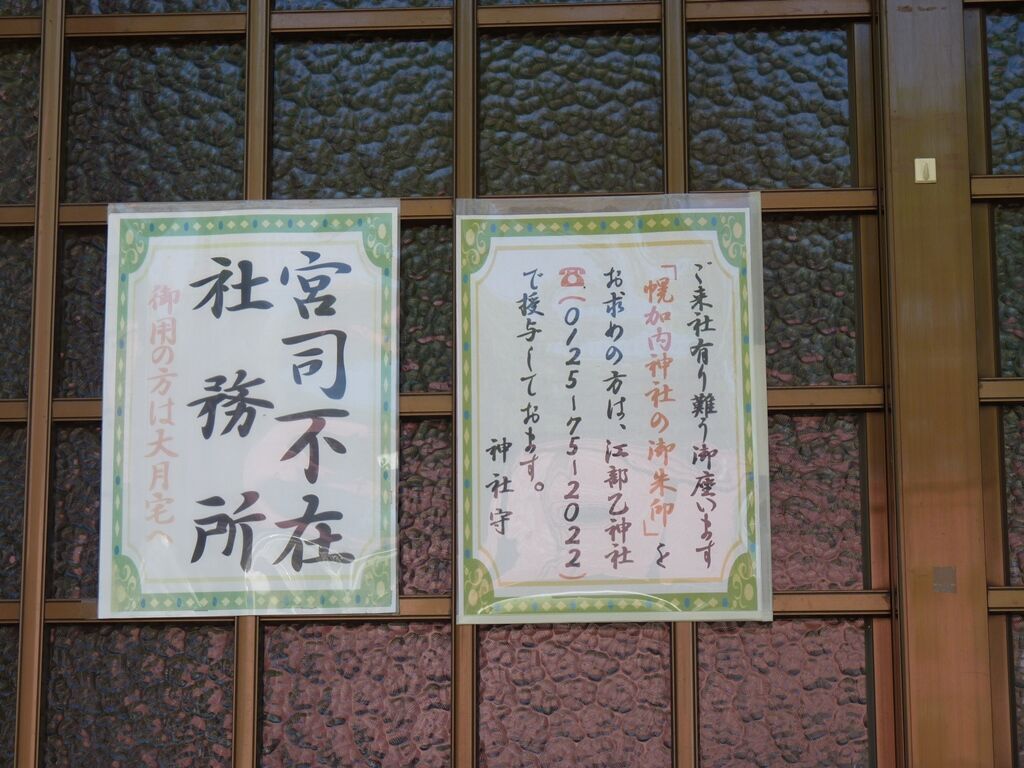 宮司不在
社務所
御用の方は大月宅へ
ご来社有り難う御座います
「幌加内神社の御朱印」を
お求めの方は、江部乙神社
☎(0125-75-2022)
で授与しております。
神社守